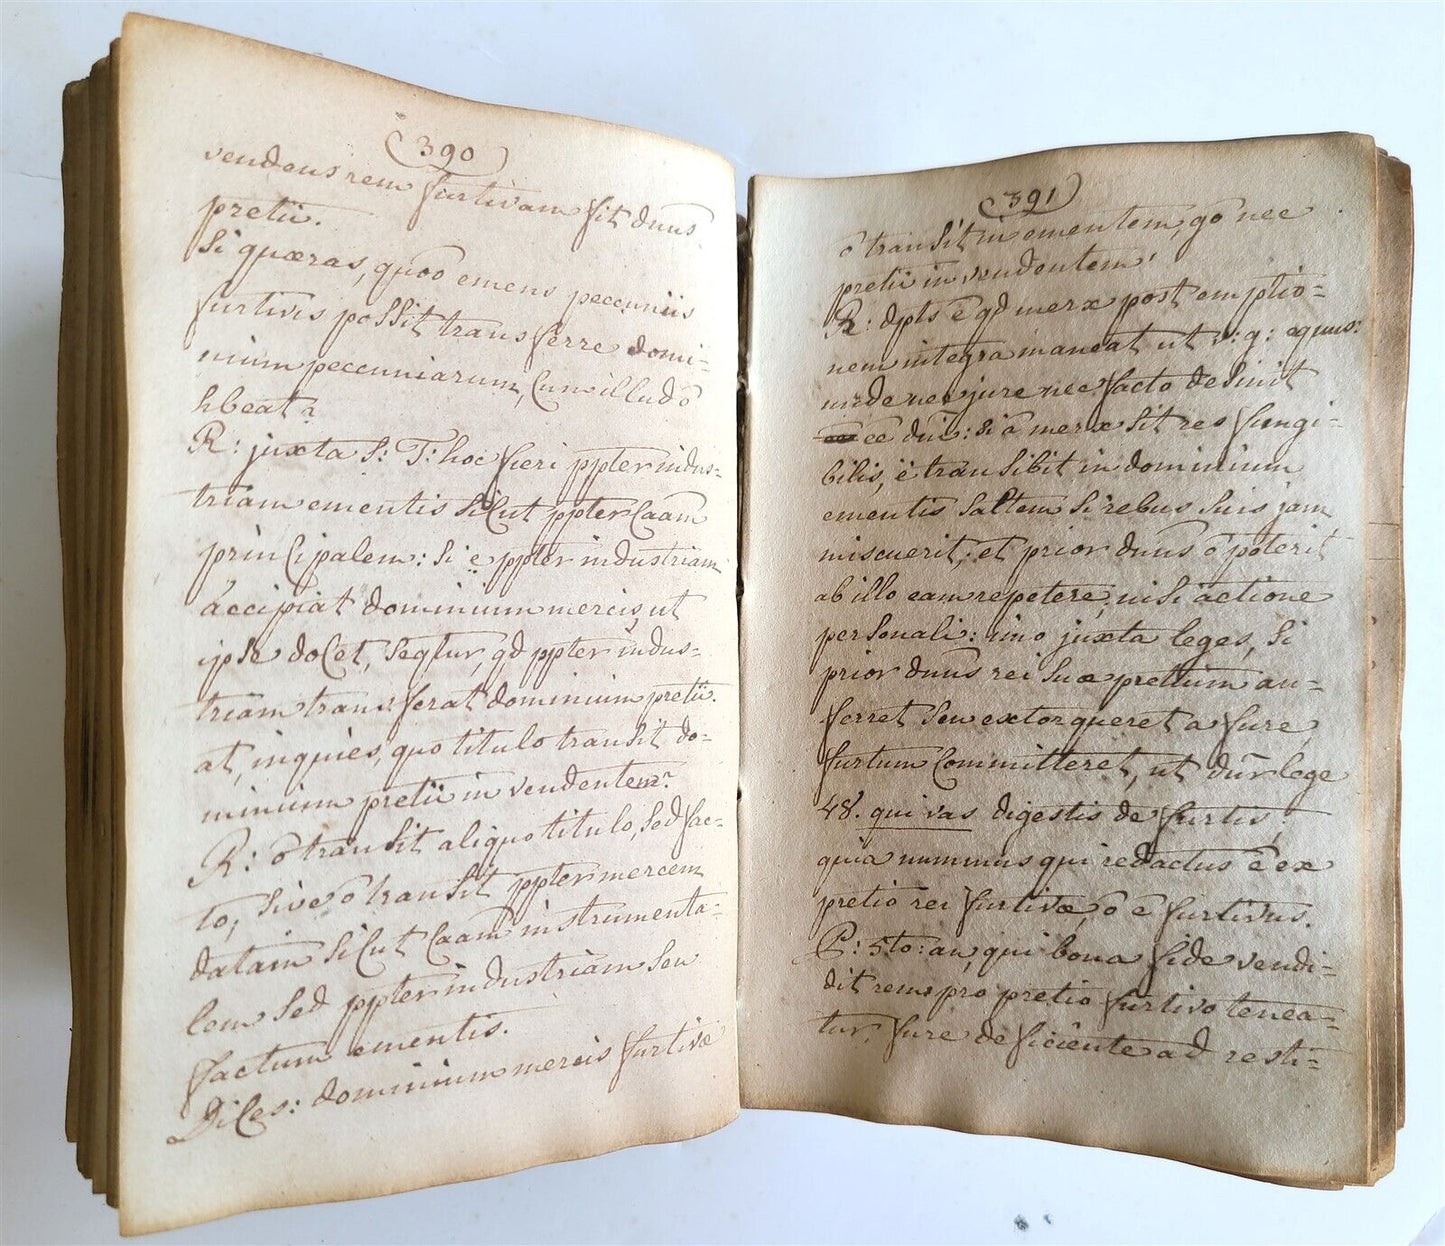 (390)
vendens rem furtivam sit dnus
pretii.
Si quæras, quōo emens pecuniis
furtivis possit transferre domi=
nium pecuniarum, cum illud ō
hbeat?
R: juxta S: T: hoc fieri ppter indus=
triam ementis sicut ppter caām
principalem: si .e. ppter industriam
accipiat dominium mercis, ut
ipse docet, seqtur, qd ppter indus=
triam transferat dominium pretii.
at, inquies, quo titulo transit do=
minium pretii in vendentem?
R: ō transit aliquo titulo, sed fac=
to, sive ō transit ppter mercem
datam sicut caām instrumenta=
lem sed ppter industriam seu
factum ementis.
Dices: dominium mercis furtivæ
(391)
ō transit in ementem, gō nec
pretii in vendentem.
R: dpts ē qd merx post emptio=
nem integra maneat ut v: g: equus:
unde nec jure nec facto desinit
ēē dni: si ā merx sit res fungi=
bilis, ë transibit in dominium
ementis saltem si rebus suis jam
miscuerit, et prior dnus ō poterit
ab illo eam repetere, nisi actione
personali: imo juxta leges, si
prior dnus rei suæ pretium au=
ferret seu extorqueret a fure,
furtum committeret, ut dur lege
48. qui vas digestis de furtis,
quia nummus qui redactus ē ex
pretio rei furtivæ, ō ē furtivus.
P: 5to: an, qui bona fide vendi=
dit rem pro pretio furtivo tenea=
tur, fure deficiente ad resti=